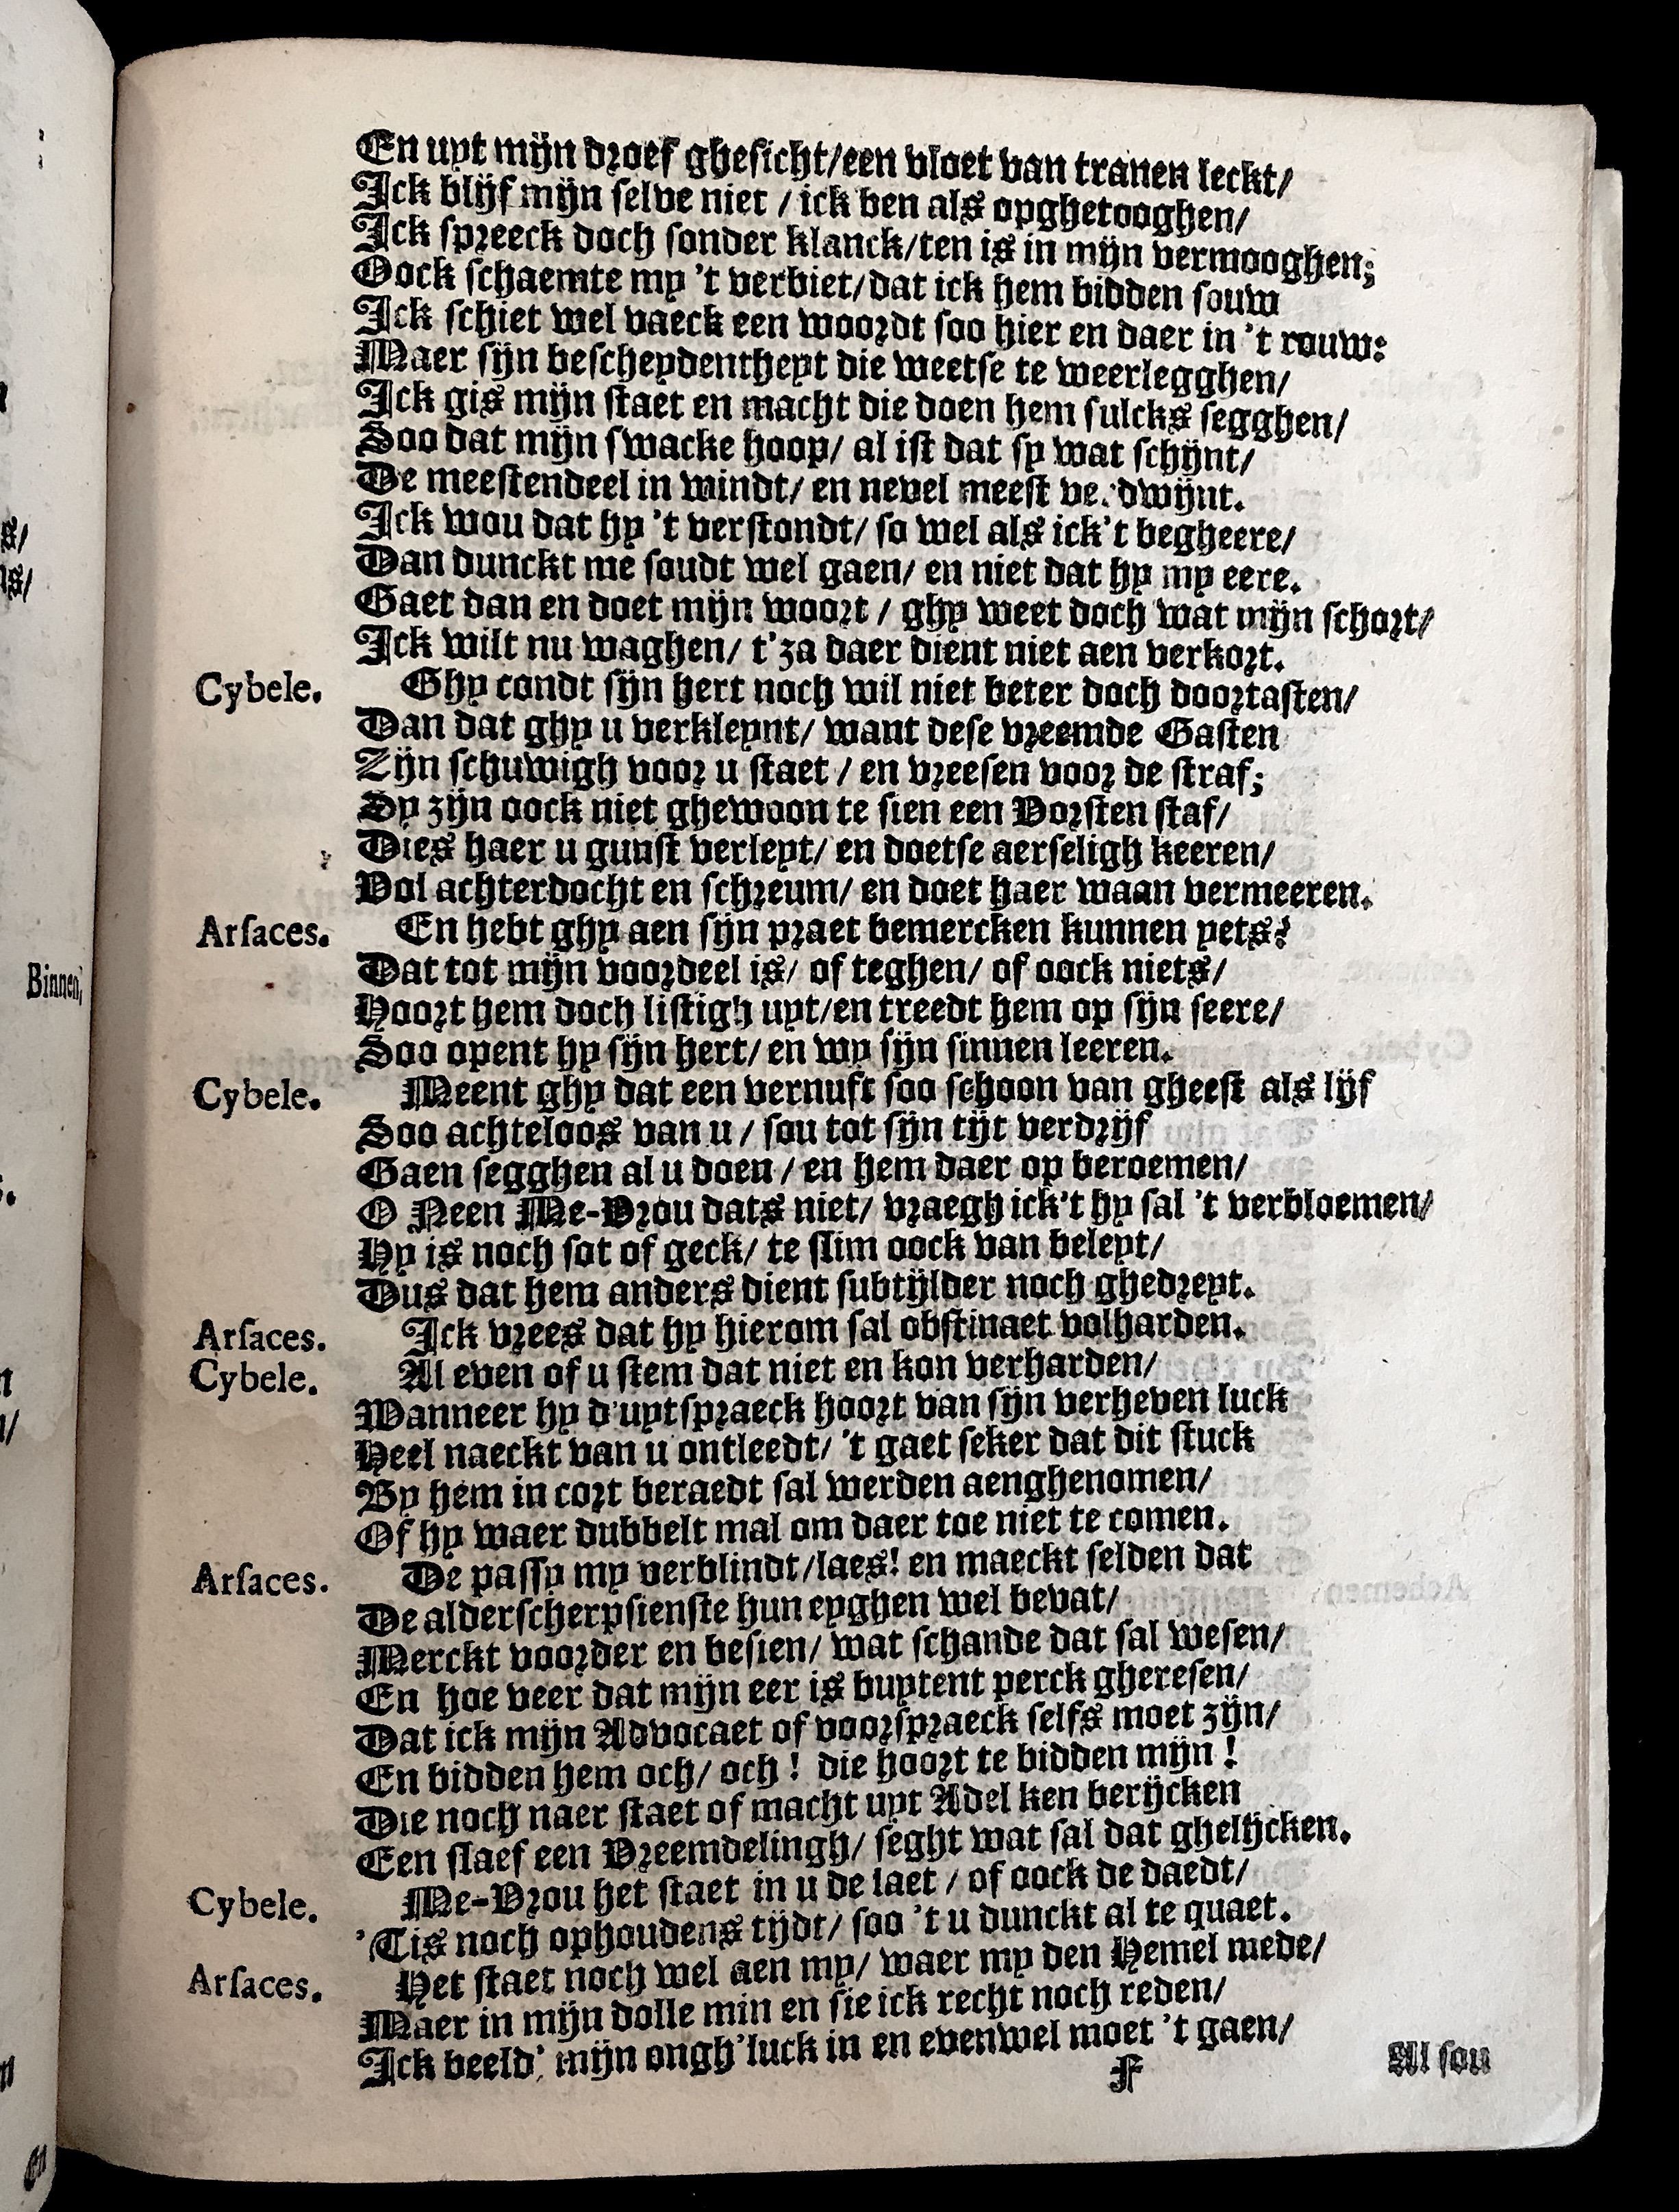 En uyt mijn droef ghesicht/een vloet van tranen leckt/
Ick blijf mijn selve niet / ick ben als opghetooghen/
Ick spreeck doch sonder klanck/ten is in mijn vermooghen;
Oock schaemte my 't verbiet/dat ick hem bidden souw
Ick schiet wel vaeck een woordt soo hier en daer in 't rouw:
Maer sijn bescheydentheyt die weetse te weerlegghen/
Ick gis mijn staet en macht die doen hem sulcks segghen/
Soo dat mijn swacke hoop/ al ist dat sy wat schijnt/
De meestendeel in windt/ en nevel meest ve.dwijnt.
Ick wou dat hy 't verstondt/ so wel als ick't begheere/
Dan dunckt me soudt wel gaen/ en niet dat hy my eere.
Gaet dan en doet mijn woort / ghy weet doch wat mijn schort/
Ick wilt nu waghen/ t'za daer dient niet aen verkort.
Cybele. Ghy condt sijn hert noch wil niet beter doch doortasten/
Dan dat ghy u verkleynt/ want dese vreemde Gasten
Zijn schuwigh voor u staet / en vreesen voor de straf;
Sy zijn oock niet ghewoon te sien een Vorsten staf/
Dies haer u gunst verleyt/ en doetse aerseligh keeren/
Vol achterdocht en schreum/ en doet haer waan vermeeren.
Arsaces. En hebt ghy aen sijn praet bemercken kunnen yets?
Dat tot mijn voordeel is/ of teghen/ of oock niets/
Hoort hem doch listigh uyt/en treedt hem op sijn seere/
Soo opent hy sijn hert/ en wy sijn sinnen leeren.
Cybele. Meent ghy dat een vernuft soo schoon van gheest als lijf
Soo achteloos van u / sou tot sijn tijt verdrijf
Gaen segghen al u doen / en hem daer op beroemen/
O Neen Me-Vrou dats niet/ vraegh ick't hy sal 't verbloemen/
Hy is noch sot of geck/ te slim oock van beleyt/
Dus dat hem anders dient subtijlder noch ghedreyt.
Arsaces. Ick vrees dat hy hierom sal obstinaet volharden.
Cybele. Al even of u stem dat niet en kon verharden/
Wanneer hy d'uytspraeck hoort van sijn verheven luck
Heel naeckt van u ontleedt/ 't gaet seker dat dit stuck
By hem in cort beraedt sal werden aenghenomen/
Of hy waer dubbelt mal om daer toe niet te comen.
Arsaces. De passy my verblindt/laes! en maeckt selden dat
De alderscherpsienste hun eyghen wel bevat/
Merckt voorder en besien/ wat schande dat sal wesen/
En hoe veer dat mijn eer is buytent perck gheresen/
Dat ick mijn Advocaet of voorspraeck selfs moet zijn/
En bidden hem och/ och ! die hoort te bidden mijn !
Die noch naer staet of macht uyt Adel ken berijcken
Een slaef een Vreemdelingh/ seght wat sal dat ghelijcken.
Cybele. Me-Vrou het staet in u de laet / of oock de daedt/
'Tis noch ophoudens tijdt/ soo 't u dunckt al te quaet.
Arsaces. Het staet noch wel aen my/ waer my den Hemel mede/
Maer in mijn dolle min en sie ick recht noch reden/
Ick beeld' mijn ongh'luck in en evenwel moet 't gaen/
F
Al sou
Binnen